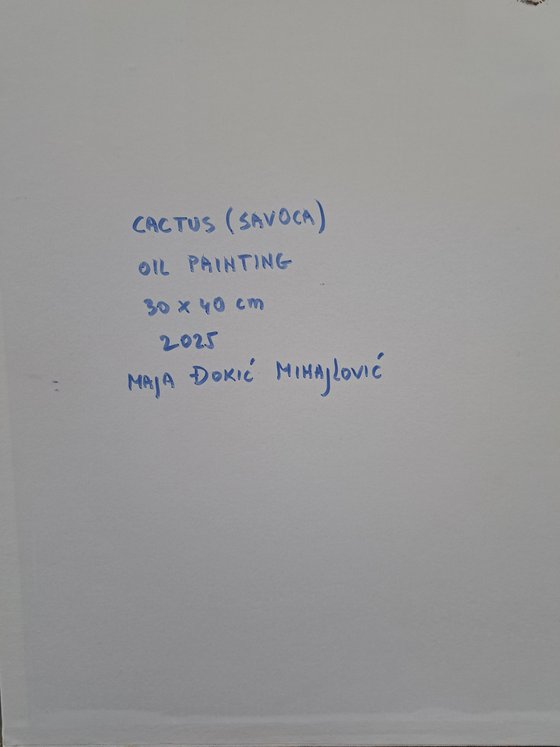 CACTUS (SAVOCA)
OIL PAINTING
30 x 40 cm
2025
MAJA ĐOKIĆ MIHAJLOVIĆ